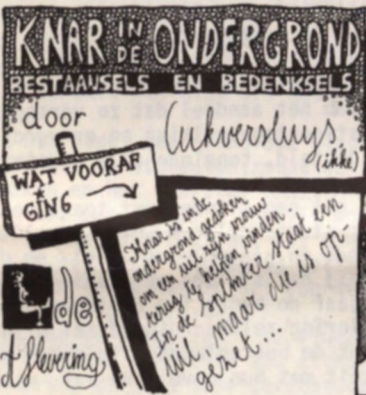 KNAR IN DE ONDERGROND
BESTAANSELS EN BEDENKSELS
door
Lukversluys
(ikke)
WAT VOORAF
GING
Knar is in de
ondergrond gedoken
om een uil zijn vrouw
terug te helpen vinden.
In de Splinter staat een
uil, maar die is op-
gezet...
de
aflevering